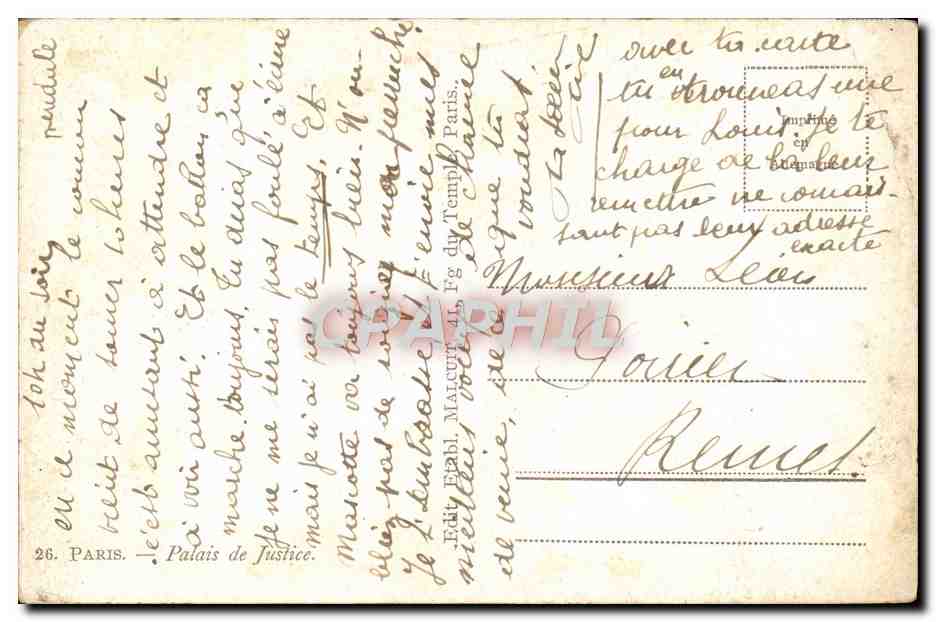 10h du soir
pendule
en ce moment le
vient de sonner 10 heures
c'est amusant à attendre et
à voir aussi. Et le ballon ça
marche toujours. Tu diras que
je ne me serais pas foulé à écrire
mais je n'ai pas le temps. Et
va toujours bien. N'ou-
bliez pas de soigner mon
Je t'embrasse et t'envoie mes
meilleurs voeux de
de venir, et de ce que tu
voudras
Ta
avec ta carte
tu en trouveras une
pour Louis. Je te
charge de la leur
remettre ne connais-
sant pas leur adresse
exacte
Monsieur Léon
Imprimé
en
Allemagne
Edit. Etabl. MALCUIT, 41, Fg du Temple, Paris.
26. PARIS. — Palais de Justice.
CPAPHIL